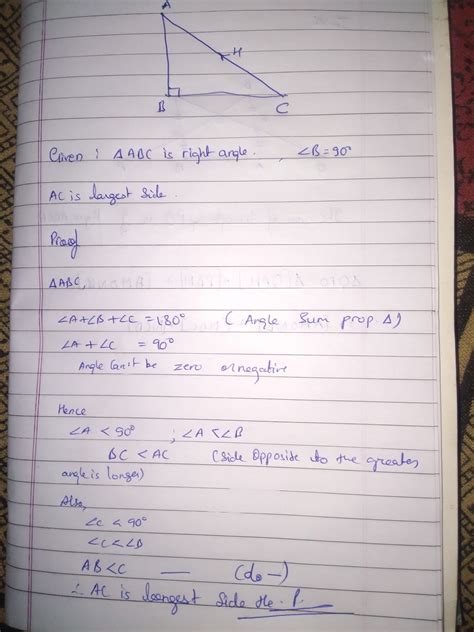 A
H
B
C
Given : ΔABC is right angle. , ∠B=90°
AC is largest side.
Proof
ΔABC,
∠A+∠B+∠C = 180° ( Angle Sum prop. Δ)
∠A + ∠C = 90°
Angle can't be zero or negative
Hence
∠A < 90° ; ∠A<∠B
BC < AC (Side opposite to the greater
angle is longer)
Also,
∠C < 90°
∠C<∠B
AB<C — (do —)
∴ AC is longest side He. P.